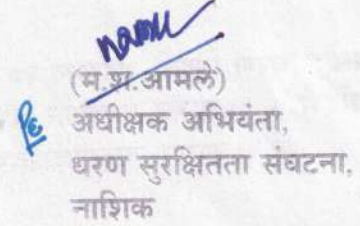 (म.श.आमले)
अधीक्षक अभियंता,
धरण सुरक्षितता संघटना,
नाशिक